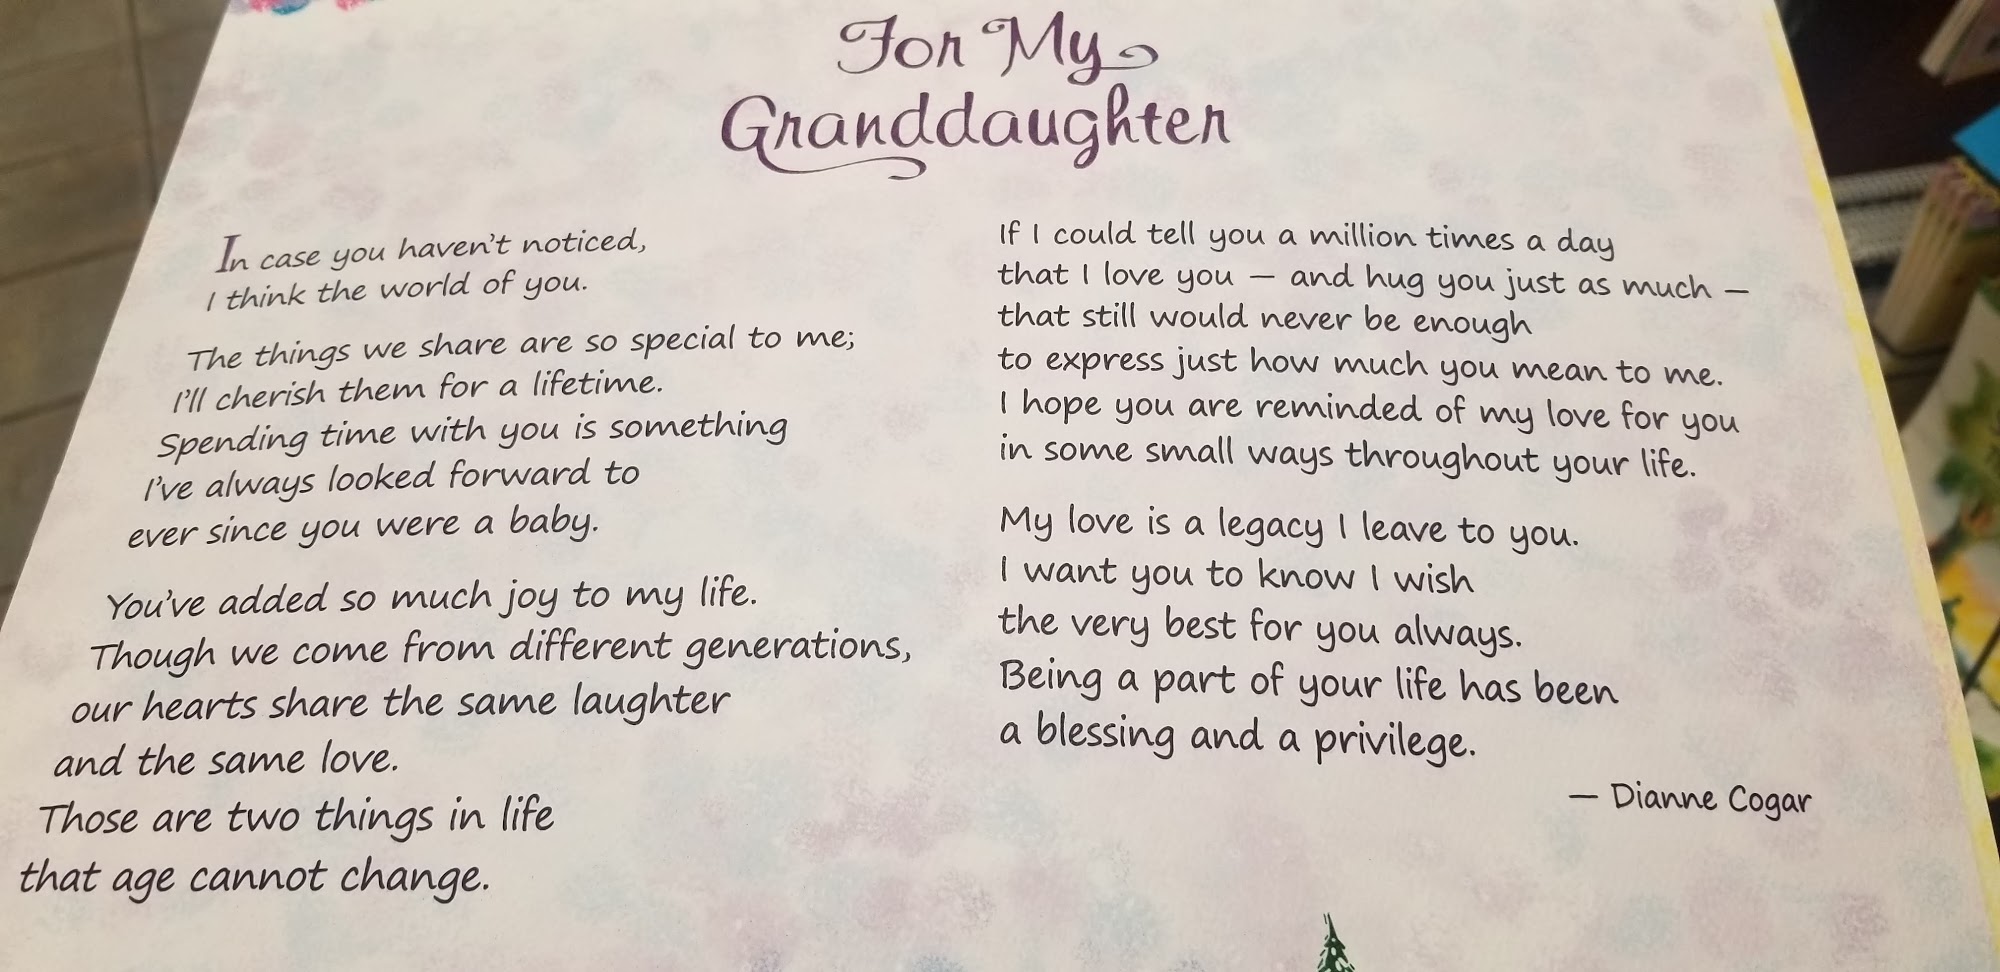 For My
Granddaughter
In case you haven't noticed,
I think the world of you.
The things we share are so special to me;
I'll cherish them for a lifetime.
Spending time with you is something
I've always looked forward to
ever since you were a baby.
You've added so much joy to my life.
Though we come from different generations,
our hearts share the same laughter
and the same love.
Those are two things in life
that age cannot change.
If I could tell you a million times a day
that I love you — and hug you just as much —
that still would never be enough
to express just how much you mean to me.
I hope you are reminded of my love for you
in some small ways throughout your life.
My love is a legacy I leave to you.
I want you to know I wish
the very best for you always.
Being a part of your life has been
a blessing and a privilege.
— Dianne Cogar